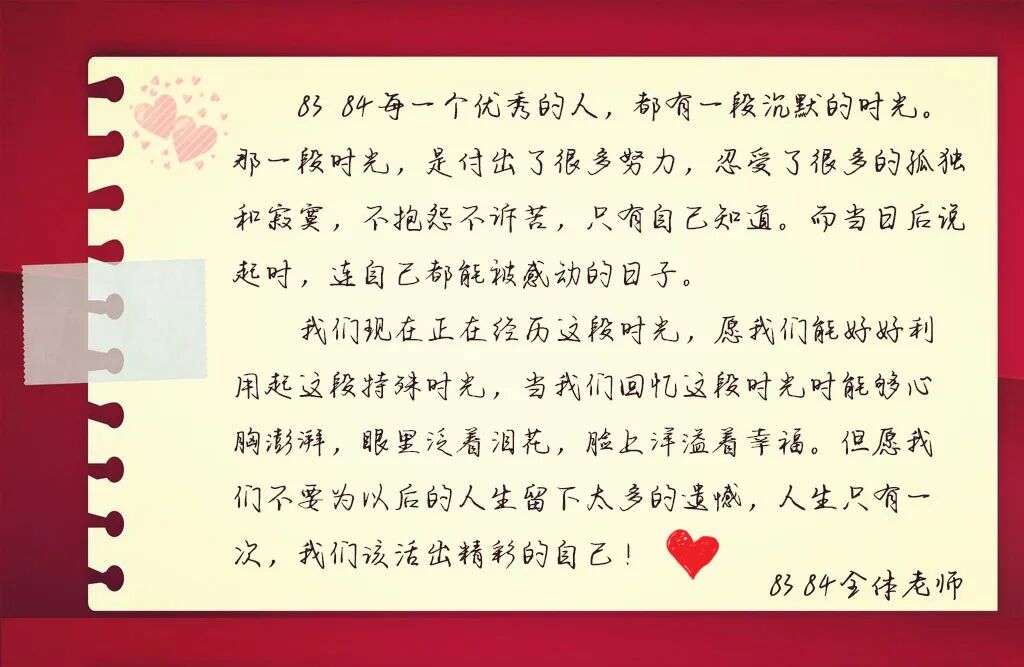 83 84每一个优秀的人，都有一段沉默的时光。
那一段时光，是付出了很多努力，忍受了很多的孤独
和寂寞，不抱怨不诉苦，只有自己知道。而当日后说
起时，连自己都能被感动的日子。
我们现在正在经历这段时光，愿我们能好好利
用起这段特殊时光，当我们回忆这段时光时能够心
胸澎湃，眼里泛着泪花，脸上洋溢着幸福。但愿我
们不要为以后的人生留下太多的遗憾，人生只有一
次，我们该活出精彩的自己！
83 84全体老师